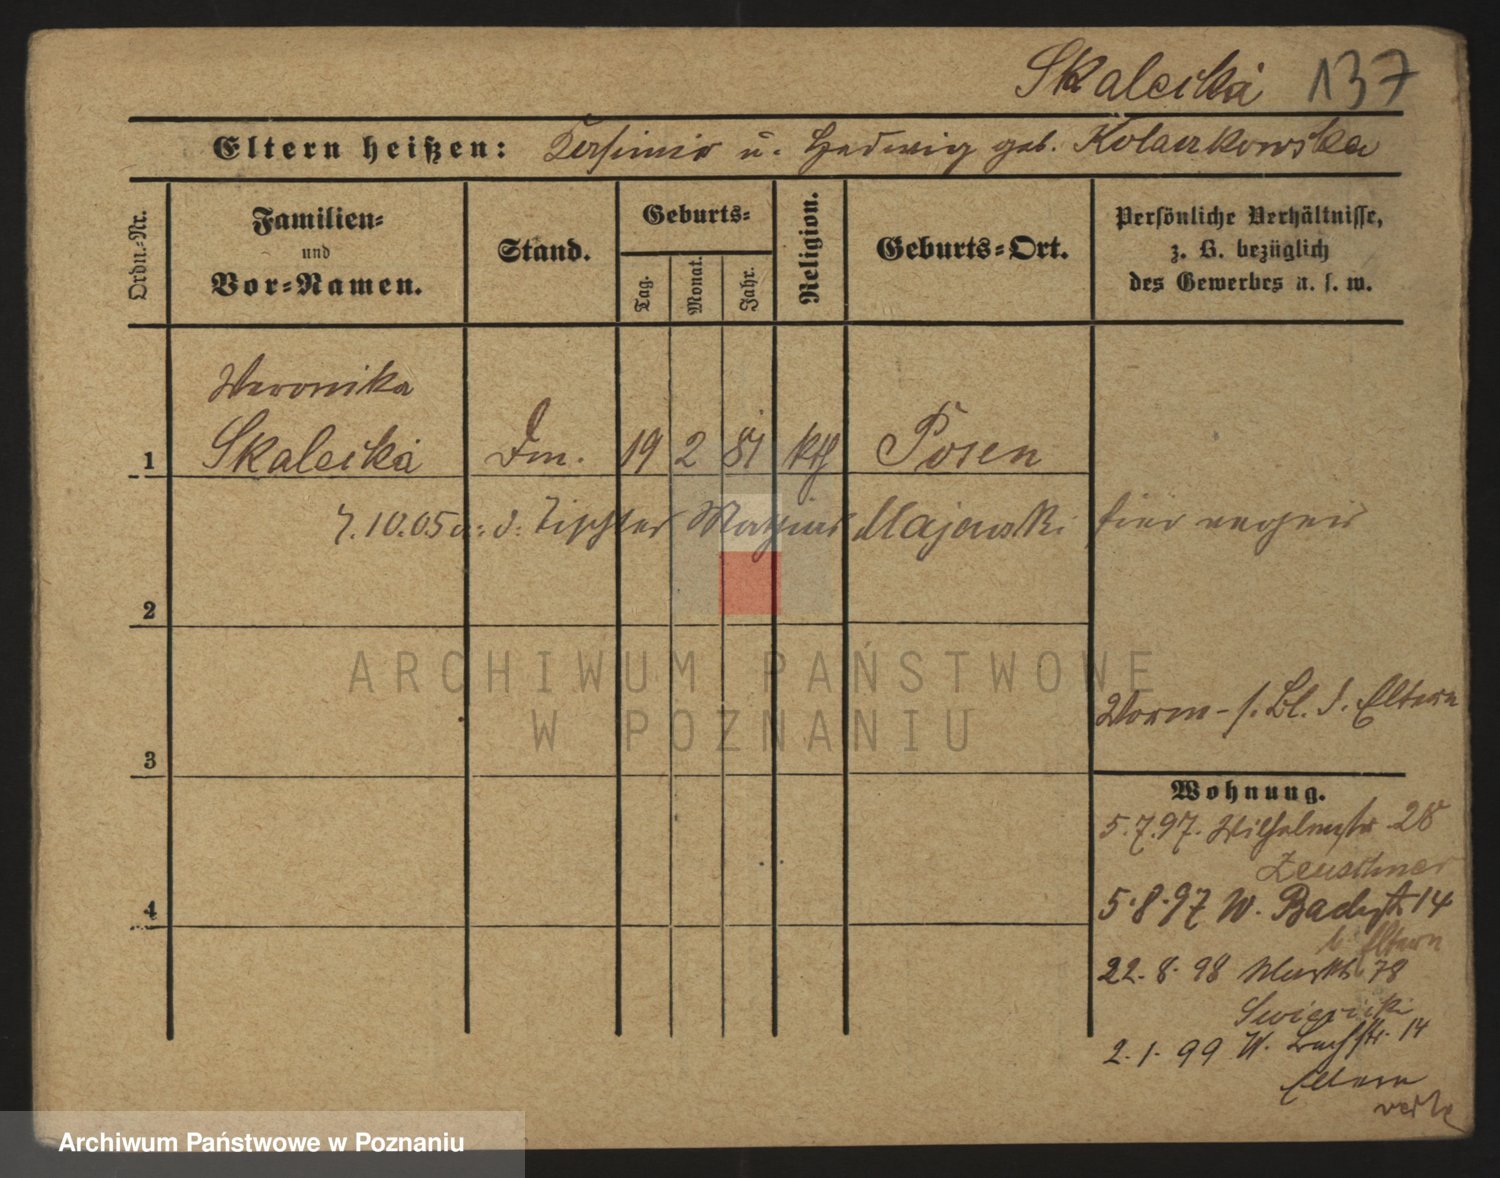 Skalecka 137
Eltern heißen: u. Hedwig geb. Kolaczkowska
Ordn.-Nr.
Familien-
und
Vor-Namen.
Stand.
Geburts-
Tag.
Monat.
Jahr.
Religion.
Geburts-Ort.
Persönliche Verhältnisse,
z. B. bezüglich
des Gewerbes u. s. w.
Weronika
1 Skalecka Dm. 19 2 81 kth Posen
7.10.05 Tischler Majewski hier
2
ARCHIWUM PAŃSTWOWE
W POZNANIU
Vorm - s. Bl. d. Eltern
3
Wohnung.
5.7.97. Wilhelmstr. 28
Zeuschner
5.8.97 W. Bachstr 14
b. Eltern
4
22.8.98 Markt 78
2.1.99 W. Bachstr. 14
Eltern
Archiwum Państwowe w Poznaniu